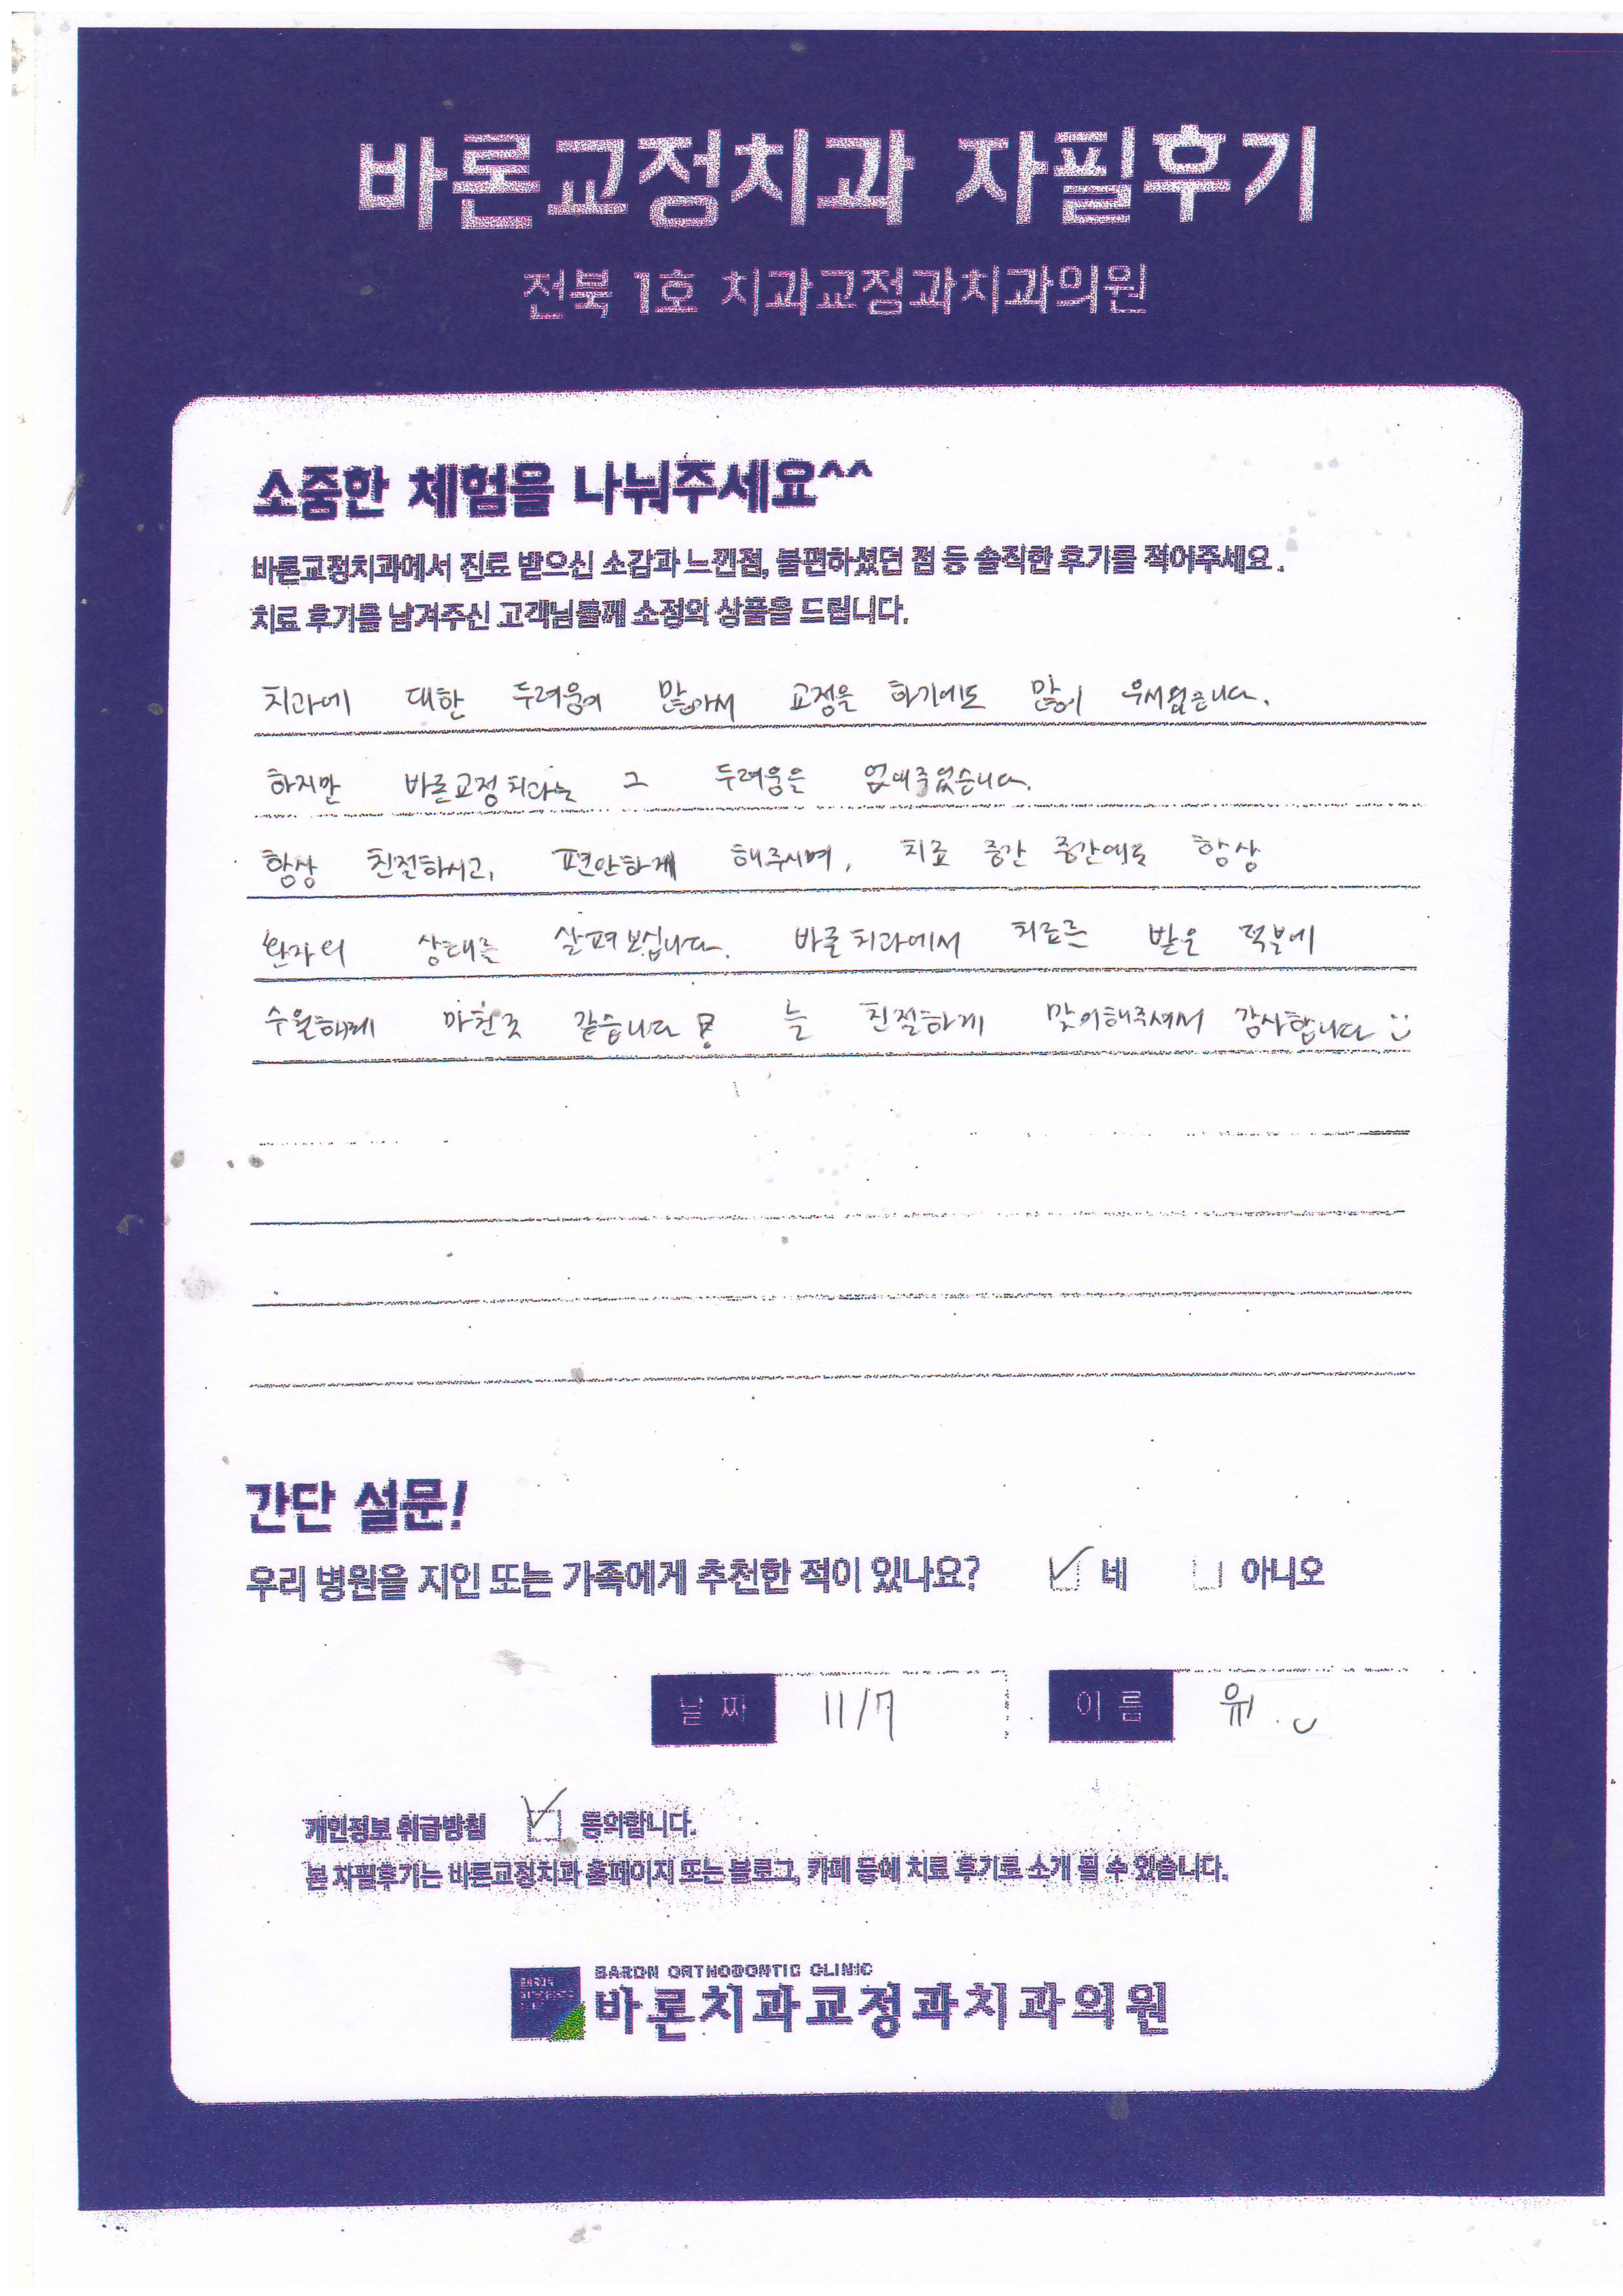 바론교정치과 자필후기
전북 1호 치과교정과치과의원
소중한 체험을 나눠주세요^^
바른교정치과에서 진료 받으신 소감과 느낀점, 불편하셨던 점 등 솔직한 후기를 적어주세요.
치료 후기를 남겨주신 고객님들께 소정의 상품을 드립니다.
치과에 대한 두려움이 많아서 교정을 하기에도 많이 무서웠습니다.
하지만 바른교정치과는 그 두려움을 없애주었습니다.
항상 친절하시고, 편안하게 해주시며, 치료 중간 중간에도 항상
환자의 상태를 살펴보십니다. 바른치과에서 치료를 받은 덕분에
수월하게 마친것 같습니다! 늘 친절하게 맞이해주셔서 감사합니다
간단 설문!
우리 병원을 지인 또는 가족에게 추천한 적이 있나요? 네 아니오
날짜 11/7 이름 위
개인정보 취급방침 동의합니다.
본 자필후기는 바른교정치과 홈페이지 또는 블로그, 카페 등에 치료 후기로 소개 될 수 있습니다.
BARON ORTHODONTIC CLINIC
바론치과교정과치과의원